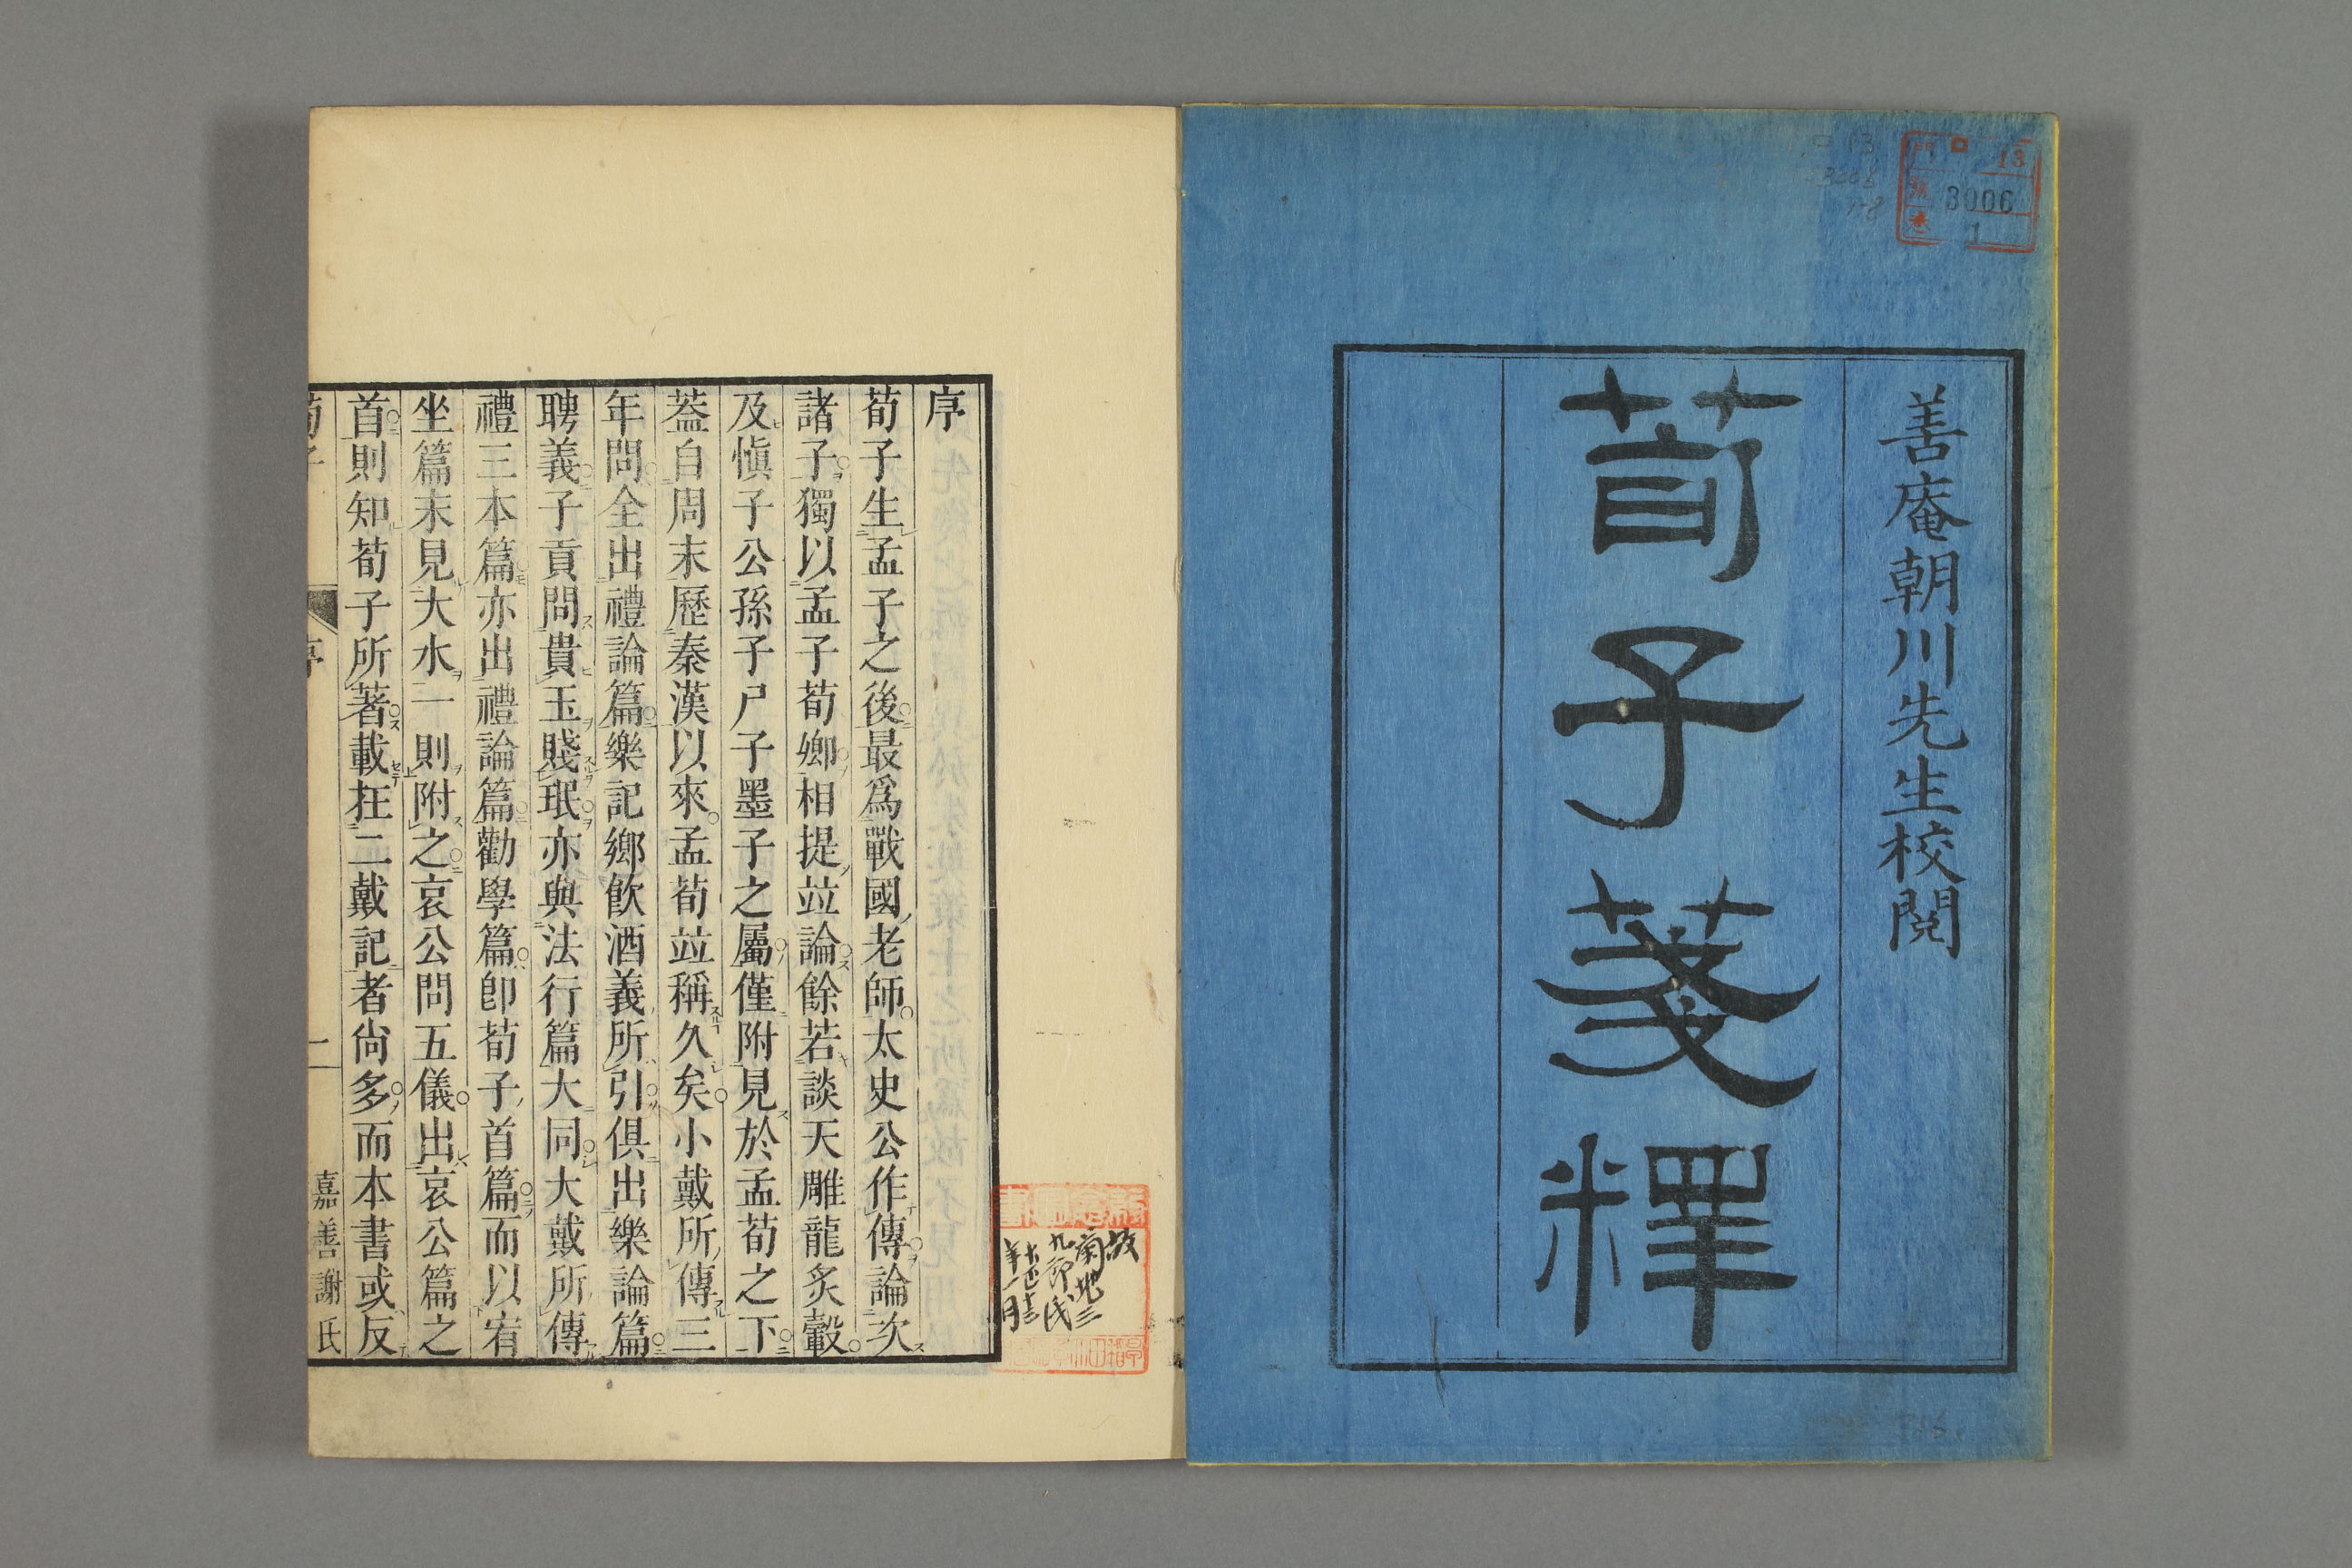 門 ロ 13
號 3006
卷 1
善庵朝川先生校閲
荀子箋釋
序
荀子生孟子之後最爲戰國老師太史公作傳論次
諸子獨以孟子荀卿相提竝論餘若談天雕龍炙轂
及愼子公孫子尸子墨子之屬僅附見於孟荀之下
葢自周末歷秦漢以來孟荀竝稱久矣小戴所傳三
年問全出禮論篇樂記鄉飮酒義所引俱出樂論篇
聘義子貢問貴玉賤珉亦與法行篇大同大戴所傳
禮三本篇亦出禮論篇勸學篇卽荀子首篇而以宥
坐篇末見大水一則附之哀公問五儀出哀公篇之
首則知荀子所著載在二戴記者尙多而本書或反
荀子 序 一 嘉善謝氏
故
南摠三
九郎氏